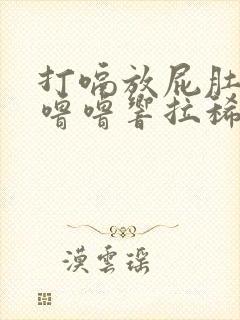 打嗝放屁肚
噜噜響拉稀
漠雲瑶